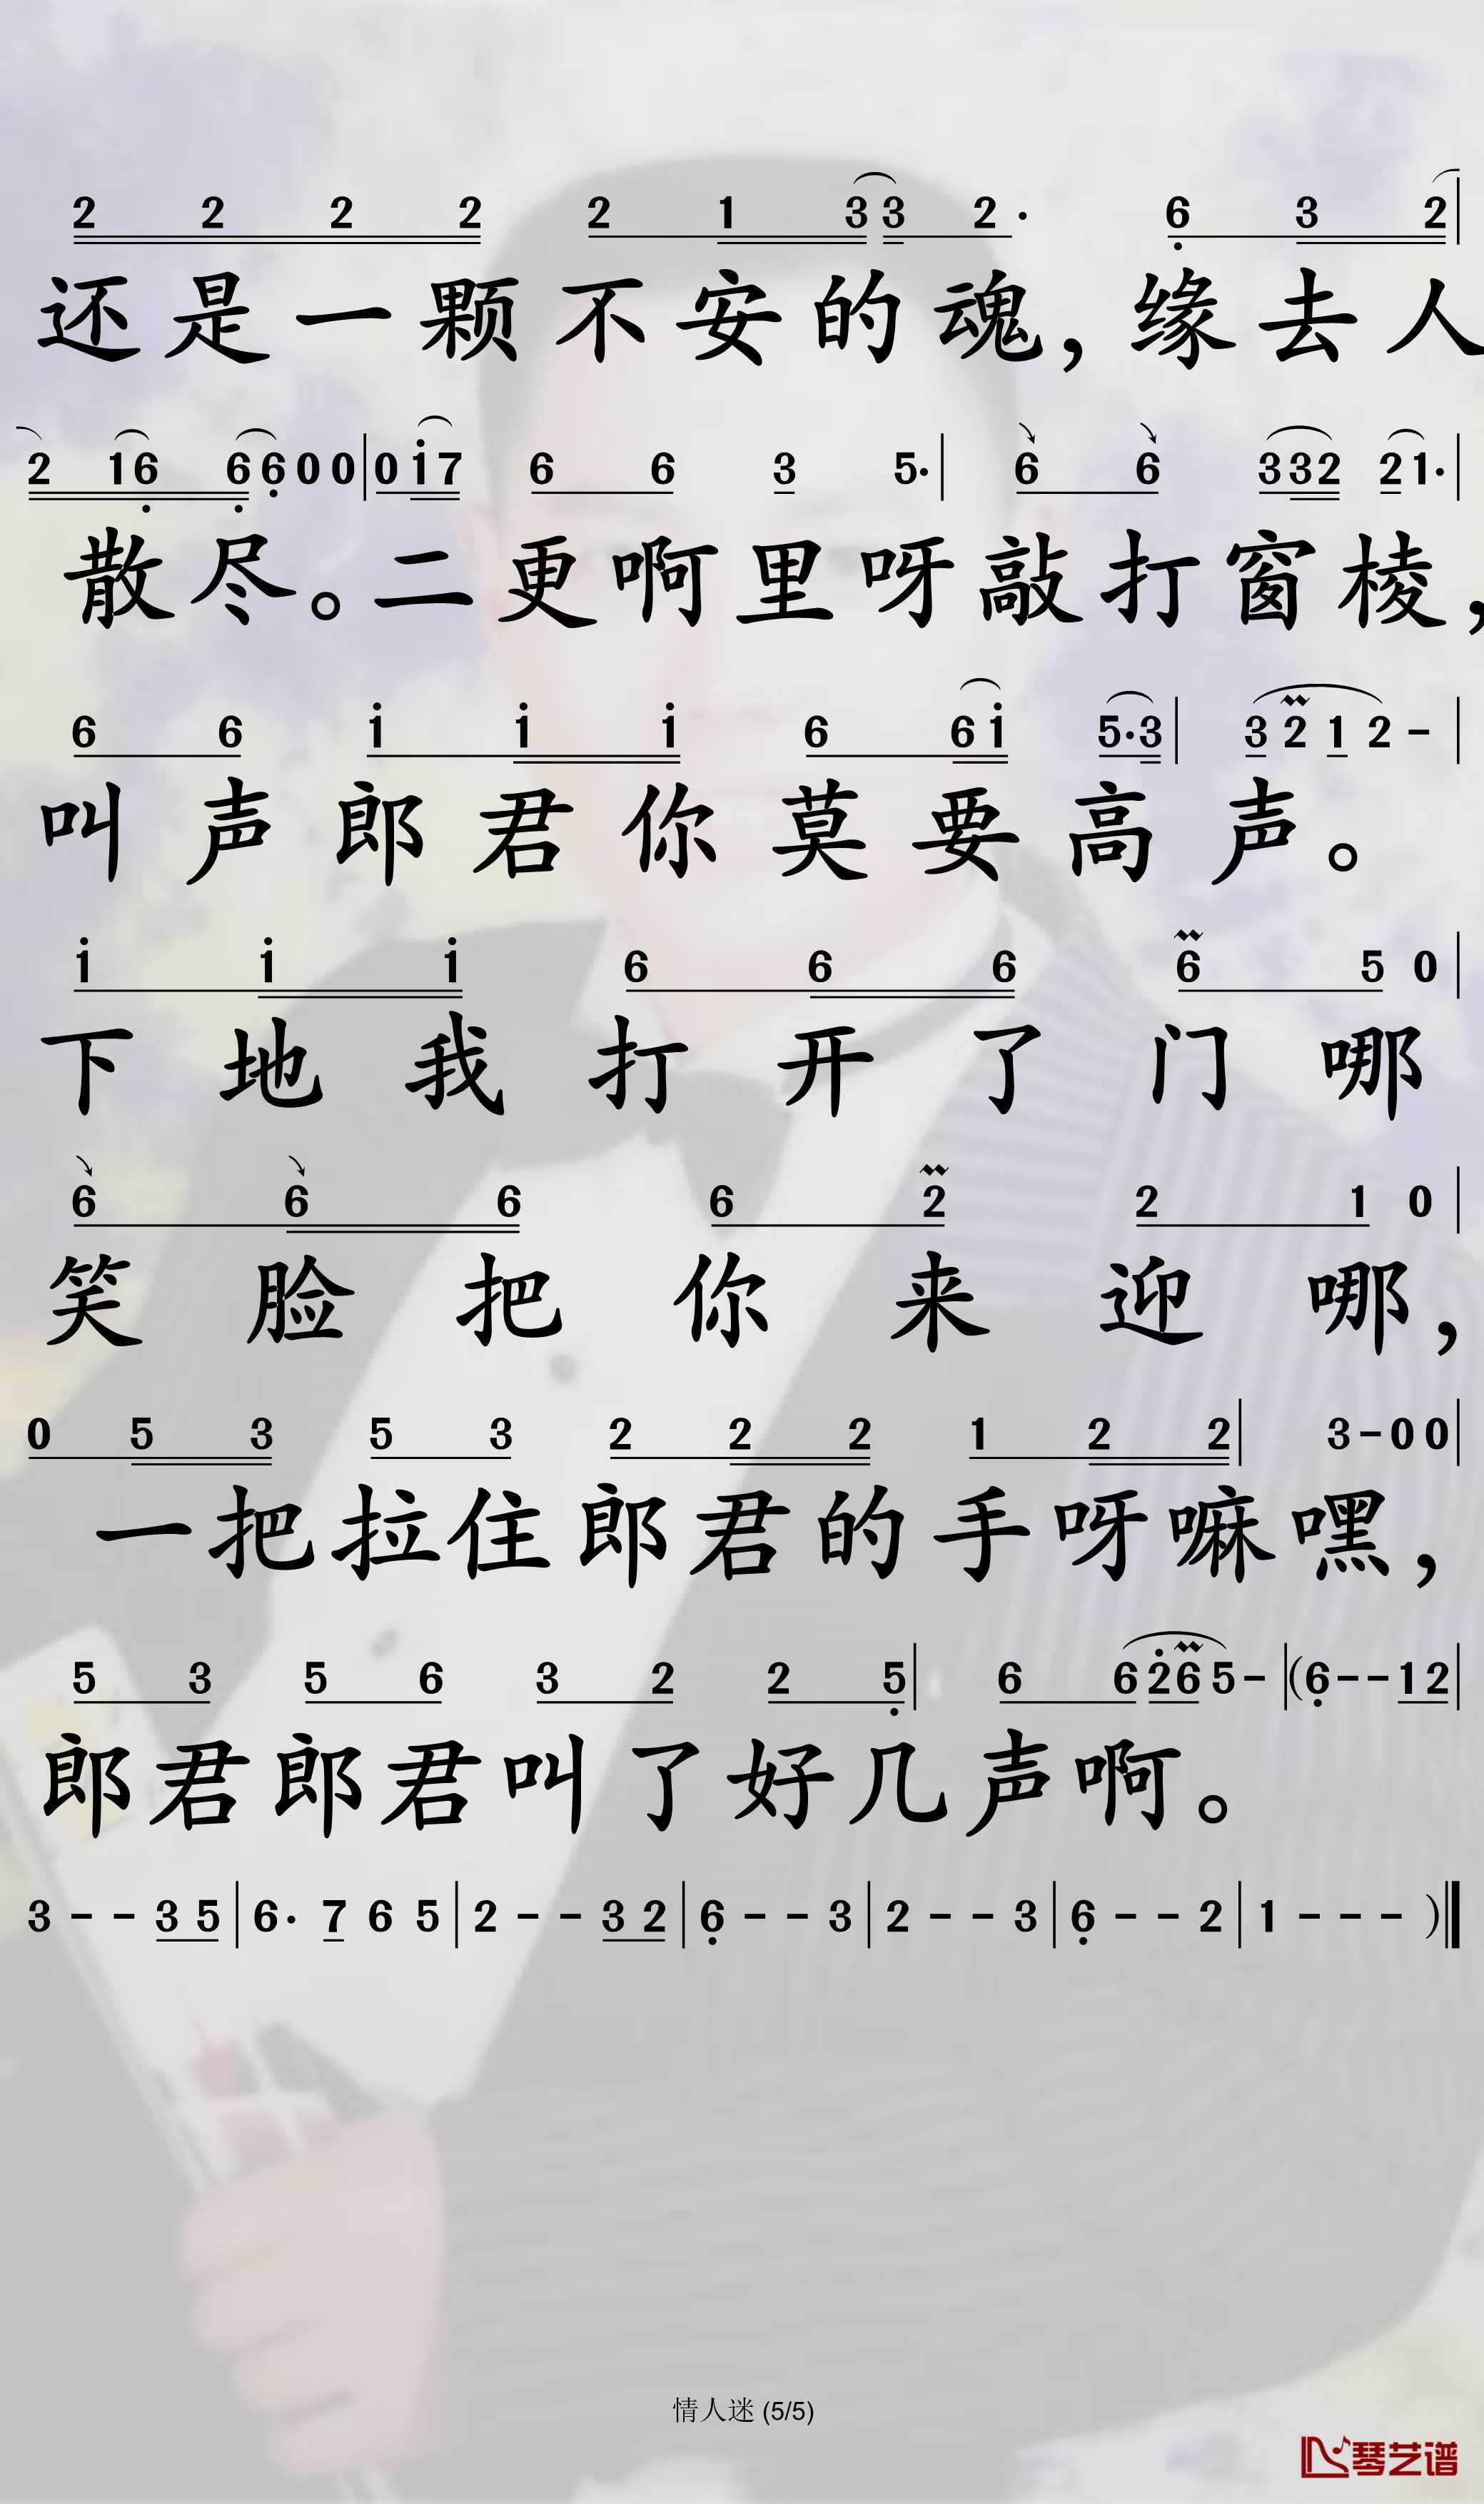 2 2 2 2 2 1 3 3 2· 6 3 2|
还是一颗不安的魂，缘去人
2 16 6 6 0 0|0 17 6 6 3 5·|6 6 332 21·|
散尽。二更啊里呀敲打窗棱，
6 6 1 1 1 6 61 5·3|3 2 1 2 -|
叫声郎君你莫要高声。
1 1 1 6 6 6 6 5 0|
下地我打开了门哪
6 6 6 6 2 2 1 0|
笑脸把你来迎哪，
0 5 3 5 3 2 2 2 1 2 2|3 - 0 0|
一把拉住郎君的手呀嘛嘿，
5 3 5 6 3 2 2 5|6 6 2 6 5 -|(6 - - 1 2|
郎君郎君叫了好几声啊。
3 - - 3 5|6· 7 6 5|2 - - 3 2|6 - - 3|2 - - 3|6 - - 2|1 - - - )‖
情人迷 (5/5)
琴艺谱